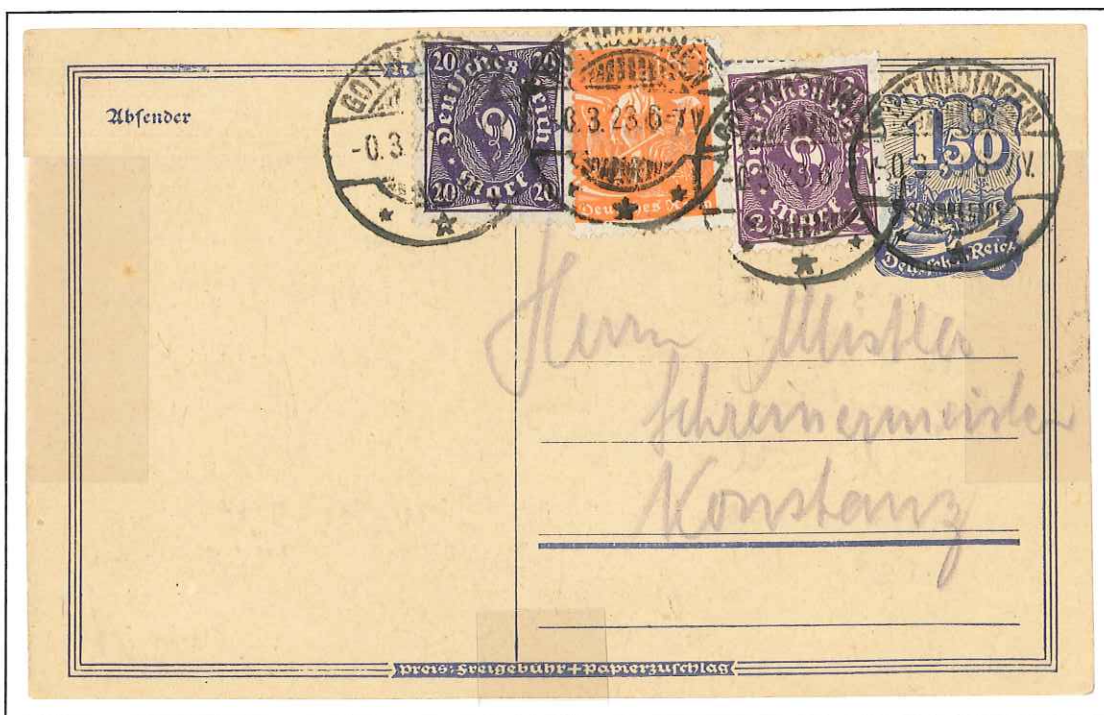 Absender
20 20
Deutsches Reich
Mark
20 20
Deutsches Reich
Deutsches Reich
Mark
1,50
Deutsches Reich
GOTTMADINGEN
3.23.6-7V.
Herrn Mistler
Schreinermeister
Konstanz
Preis: Freigebühr + Papierzuschlag